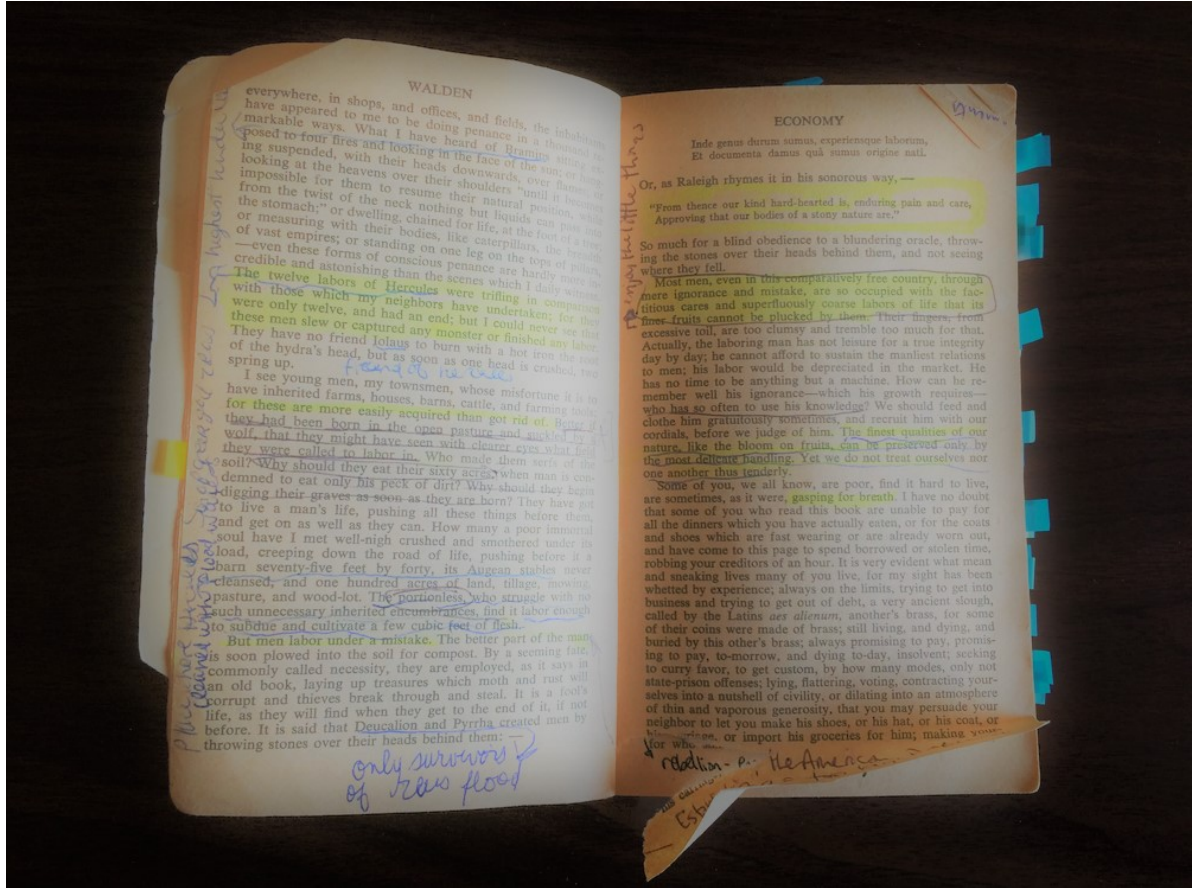 WALDEN
everywhere, in shops, and offices, and fields, the inhabitants
have appeared to me to be doing penance in a thousand re-
markable ways. What I have heard of Bramins sitting ex-
posed to four fires and looking in the face of the sun; or hang-
ing suspended, with their heads downwards, over flames; or
looking at the heavens over their shoulders "until it becomes
impossible for them to resume their natural position, while
from the twist of the neck nothing but liquids can pass into
the stomach;" or dwelling, chained for life, at the foot of a tree;
or measuring with their bodies, like caterpillars, the breadth
of vast empires; or standing on one leg on the tops of pillars,
—even these forms of conscious penance are hardly more in-
credible and astonishing than the scenes which I daily witness.
The twelve labors of Hercules were trifling in comparison
with those which my neighbors have undertaken; for they
were only twelve, and had an end; but I could never see that
these men slew or captured any monster or finished any labor.
They have no friend Iolaus to burn with a hot iron the root
of the hydra's head, but as soon as one head is crushed, two
spring up.
friend of hercules
I see young men, my townsmen, whose misfortune it is to
have inherited farms, houses, barns, cattle, and farming tools;
for these are more easily acquired than got rid of. Better if
they had been born in the open pasture and suckled by a
wolf, that they might have seen with clearer eyes what field
they were called to labor in. Who made them serfs of the
soil? Why should they eat their sixty acres, when man is con-
demned to eat only his peck of dirt? Why should they begin
digging their graves as soon as they are born? They have got
to live a man's life, pushing all these things before them,
and get on as well as they can. How many a poor immortal
soul have I met well-nigh crushed and smothered under its
load, creeping down the road of life, pushing before it a
barn seventy-five feet by forty, its Augean stables never
cleansed, and one hundred acres of land, tillage, mowing,
pasture, and wood-lot. The portionless, who struggle with no
such unnecessary inherited encumbrances, find it labor enough
to subdue and cultivate a few cubic feet of flesh.
But men labor under a mistake. The better part of the man
is soon plowed into the soil for compost. By a seeming fate,
commonly called necessity, they are employed, as it says in
an old book, laying up treasures which moth and rust will
corrupt and thieves break through and steal. It is a fool's
life, as they will find when they get to the end of it, if not
before. It is said that Deucalion and Pyrrha created men by
throwing stones over their heads behind them: —
only survivors
of Zeus flood
Place where Hercules
cleaned with flood
highest
ECONOMY
Inde genus durum sumus, experiensque laborum,
Et documenta damus quâ simus origine nati.
Or, as Raleigh rhymes it in his sonorous way, —
"From thence our kind hard-hearted is, enduring pain and care,
Approving that our bodies of a stony nature are."
So much for a blind obedience to a blundering oracle, throw-
ing the stones over their heads behind them, and not seeing
where they fell.
Most men, even in this comparatively free country, through
mere ignorance and mistake, are so occupied with the fac-
titious cares and superfluously coarse labors of life that its
finer fruits cannot be plucked by them. Their fingers, from
excessive toil, are too clumsy and tremble too much for that.
Actually, the laboring man has not leisure for a true integrity
day by day; he cannot afford to sustain the manliest relations
to men; his labor would be depreciated in the market. He
has no time to be anything but a machine. How can he re-
member well his ignorance—which his growth requires—
who has so often to use his knowledge? We should feed and
clothe him gratuitously sometimes, and recruit him with our
cordials, before we judge of him. The finest qualities of our
nature, like the bloom on fruits, can be preserved only by
the most delicate handling. Yet we do not treat ourselves nor
one another thus tenderly.
Some of you, we all know, are poor, find it hard to live,
are sometimes, as it were, gasping for breath. I have no doubt
that some of you who read this book are unable to pay for
all the dinners which you have actually eaten, or for the coats
and shoes which are fast wearing or are already worn out,
and have come to this page to spend borrowed or stolen time,
robbing your creditors of an hour. It is very evident what mean
and sneaking lives many of you live, for my sight has been
whetted by experience; always on the limits, trying to get into
business and trying to get out of debt, a very ancient slough,
called by the Latins aes alienum, another's brass, for some
of their coins were made of brass; still living, and dying, and
buried by this other's brass; always promising to pay, promis-
ing to pay, to-morrow, and dying to-day, insolvent; seeking
to curry favor, to get custom, by how many modes, only not
state-prison offenses; lying, flattering, voting, contracting your-
selves into a nutshell of civility, or dilating into an atmosphere
of thin and vaporous generosity, that you may persuade your
neighbor to let you make his shoes, or his hat, or his coat, or
or import his groceries for him; making
for who
enjoy the little things
rebellion
the America